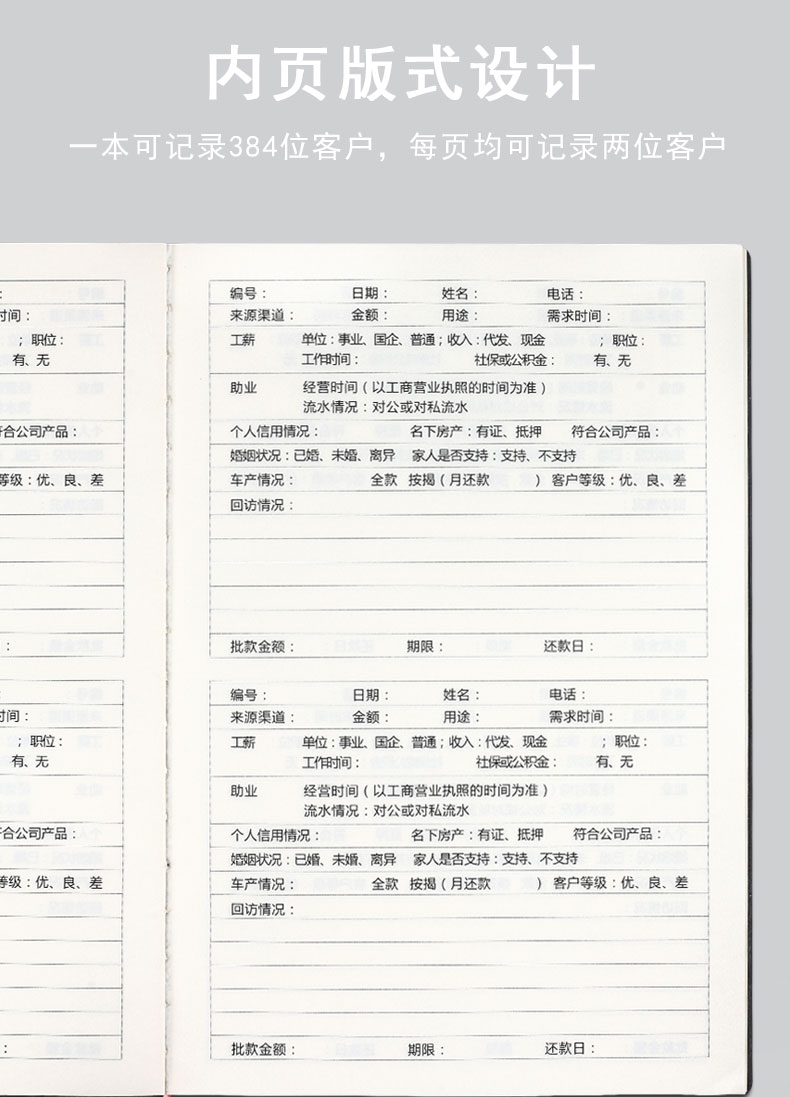 内页版式设计
一本可记录384位客户，每页均可记录两位客户
：
时间：
；职位：
有、无
符合公司产品：
等级：优、良、差
：
编号： 日期： 姓名： 电话：
来源渠道： 金额： 用途： 需求时间：
工薪 单位：事业、国企、普通；收入：代发、现金 ；职位：
工作时间： 社保或公积金： 有、无
助业 经营时间（以工商营业执照的时间为准）
流水情况：对公或对私流水
个人信用情况： 名下房产：有证、抵押 符合公司产品：
婚姻状况：已婚、未婚、离异 家人是否支持：支持、不支持
车产情况： 全款 按揭（月还款 ） 客户等级：优、良、差
回访情况：
批款金额： 期限： 还款日：
：
时间：
；职位：
有、无
符合公司产品：
等级：优、良、差
：
编号： 日期： 姓名： 电话：
来源渠道： 金额： 用途： 需求时间：
工薪 单位：事业、国企、普通；收入：代发、现金 ；职位：
工作时间： 社保或公积金： 有、无
助业 经营时间（以工商营业执照的时间为准）
流水情况：对公或对私流水
个人信用情况： 名下房产：有证、抵押 符合公司产品：
婚姻状况：已婚、未婚、离异 家人是否支持：支持、不支持
车产情况： 全款 按揭（月还款 ） 客户等级：优、良、差
回访情况：
批款金额： 期限： 还款日：